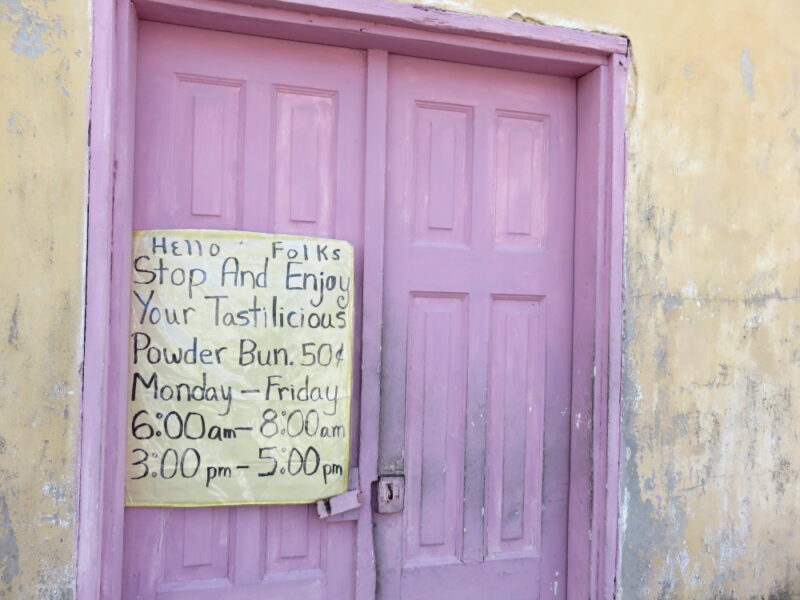 Hello Folks
Stop And Enjoy
Your Tastilicious
Powder Bun. 50¢
Monday – Friday
6:00 am – 8:00 am
3:00 pm – 5:00 pm